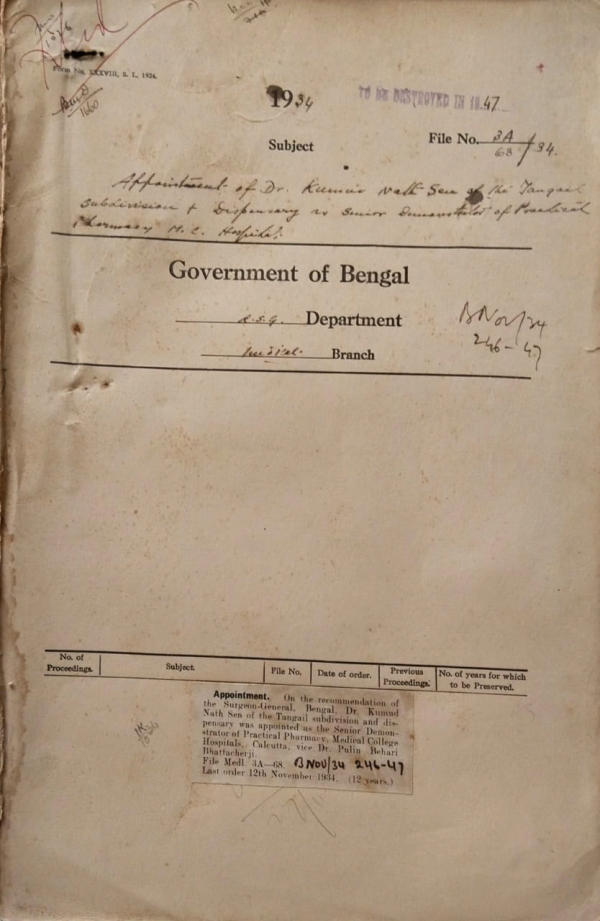 Form No. XXXVIII, S. I., 1934.
1934
TO BE DESTROYED IN 1947
Subject
File No. 3A/68/34.
Appointment of Dr. Kumud Nath Sen of the Tangail
subdivision & Dispensary as Senior Demonstrator of Practical
Pharmacy M. C. Hospital.
Government of Bengal
L.S.G. Department
Medical Branch
B Nov/34
246-47
No. of Proceedings.
Subject.
File No.
Date of order.
Previous Proceedings.
No. of years for which to be Preserved.
Appointment. On the recommendation of
the Surgeon-General, Bengal, Dr. Kumud
Nath Sen of the Tangail subdivision and dis-
pensary was appointed as the Senior Demon-
strator of Practical Pharmacy, Medical College
Hospitals, Calcutta, vice Dr. Pulin Behari
Bhattacherji.
File Medl. 3A—68. B NOV/34 246-47
Last order 12th November 1934. (12 years.)